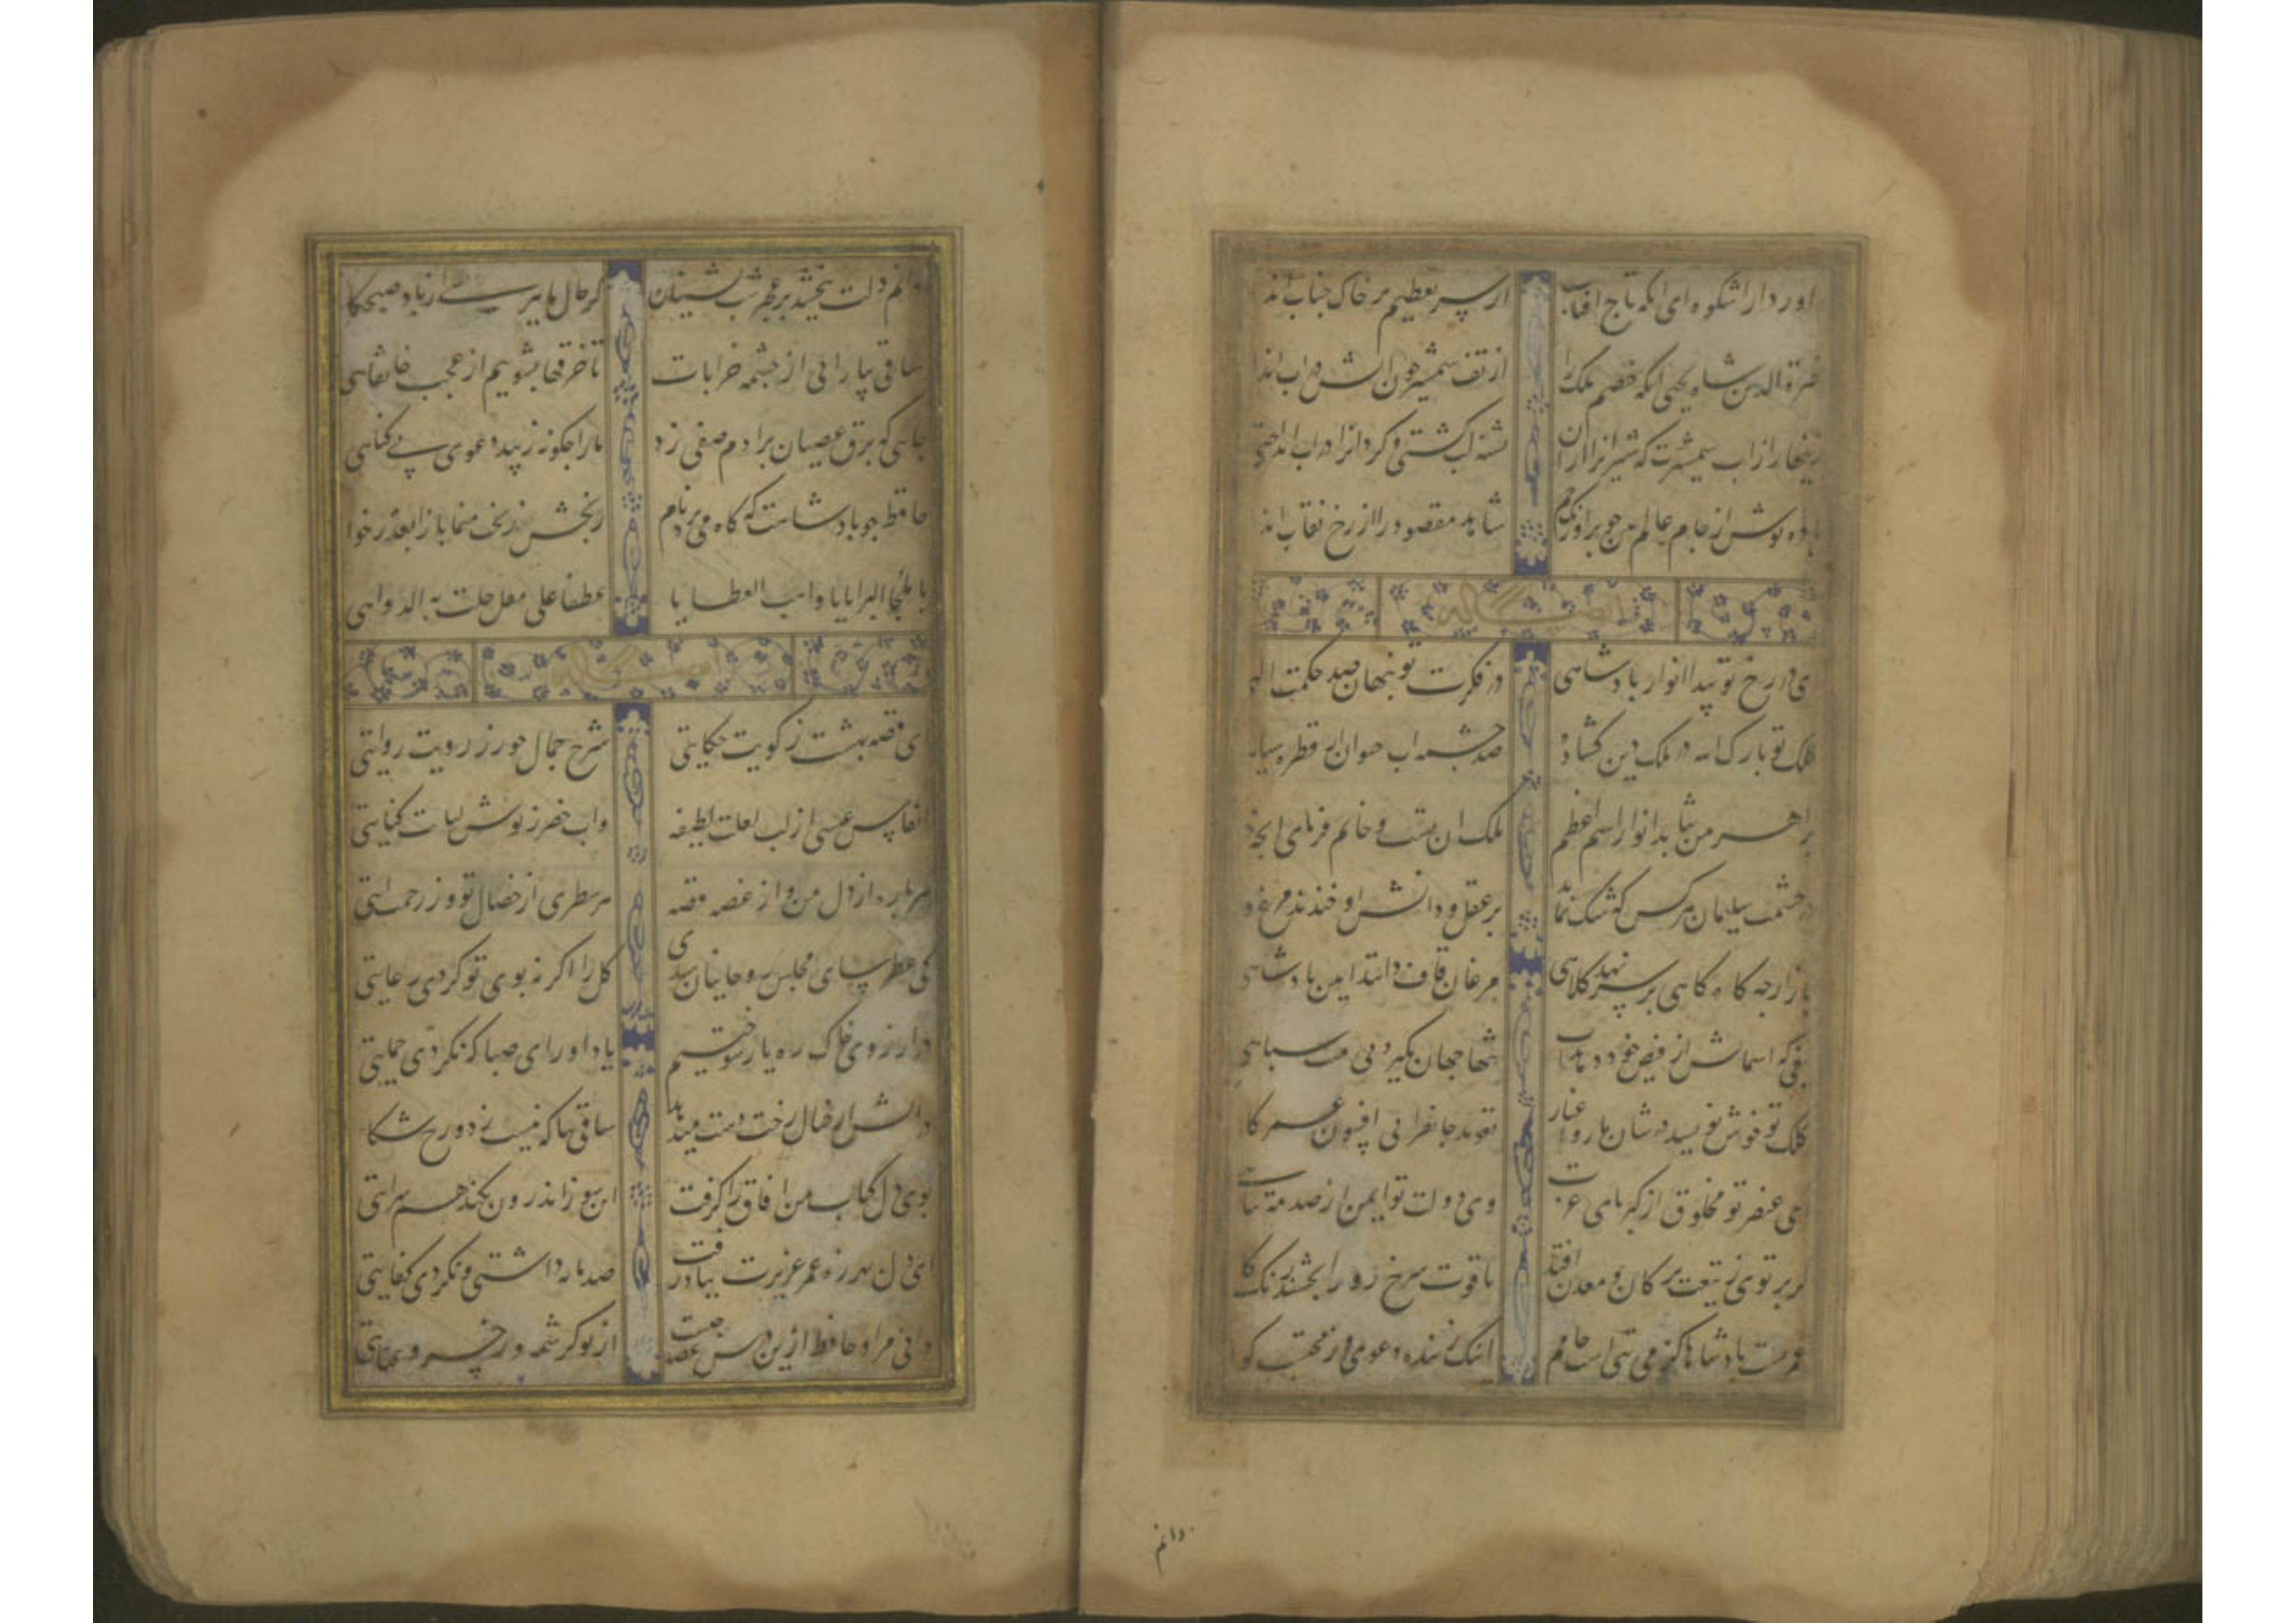 داور دارا شکوه ای انکه تاج افتاب از سر تعظیم بر خاک جناب اند
نصرة الدین شاه یحیی انکه خصم ملک را از تف شمشیر چون اتش در اب اند
زینهار از اب شمشیرت که شیرانرا ازان تشنه لب کشتی و کردانرا در اب انداختی
باده نوش از جام عالم بین جو بر اورنک جم شاهد مقصود را از رخ نقاب اند
ای در رخ تو پیدا انوار بادشاهی در فکرت تو بنهان صد حکمت الهی
کلک تو بارک الله در ملک دین کشاده صد چشمه اب حیوان از قطره سیا
بر اهرمن نتابد انوار اسم اعظم ملک ان تست و خاتم فرمای انچه خو
در حشمت سلیمان هر کس که شک نماید بر عقل و دانش او خندند مرغ و
باز ارچه کاه کاهی بر سر نهد کلاهی مرغان قاف دانند ایین بادشاهی
تیغی که اسمانش از فیض خود دهد اب تنها جهان بکیرد بی منت سباهی
کلک تو خوش نویسد در شان یار و اغیار تعوید جانفزائی افسون عمر کا
ای عنصر تو مخلوق از کبریای عزت وی دولت تو ایمن از صدمت تباهی
کر برتوی ز تیغت بر کان و معدن افتد یاقوت سرخ رو را بخشند رنک کا
عمریست بادشاها کز می تهی است جامم اینک ز بنده دعوی وز محتسب کوا
دانم
دانم دلت بخشد بر عجز شب نشینان کر حال ما ببرسی از باد صبحکا
ساقی بیار ابی از چشمه خرابات تا خرقها بشوییم از عجب خانقاهی
جایی که برق عصیان بر ادم صفی زد ما را جکونه زیبد دعوی بی کناهی
حافظ جو بادشاهت که کاه می برد نام رنجش ز بخت منما باز ا بعذر خوا
یا ملجا البرایا یا واهب العطایا عطفا علی مقل حلت به الدواهی
ای قصه بهشت ز کویت حکایتی شرح جمال حور ز رویت روایتی
انفاس عیسی از لب لعلت لطیفه واب خضر ز نوش لبانت کنایتی
هر باره از دل من و از غصه قصه هر سطری از خصال تو وز رحمت ایتی
کی عطرسای مجلس روحانیان شدی کل را اکر نه بوی تو کردی رعایتی
در ارزوی خاک ره یار سوختیم یاد اور ای صبا که نکردی حمایتی
در اتش ار خیال رخت دست میدهد ساقی بیا که نیست ز دوزخ شکا
بوی دل کباب من افاق را کرفت این سوز اندرون بکند هم سرایتی
ای دل بهرزه عمر عزیزت بباد رفت صد مایه داشتی و نکردی کفایتی
دانی مراد حافظ ازین درس و غصه جیست از تو کرشمه و ز خسرو عنایتی